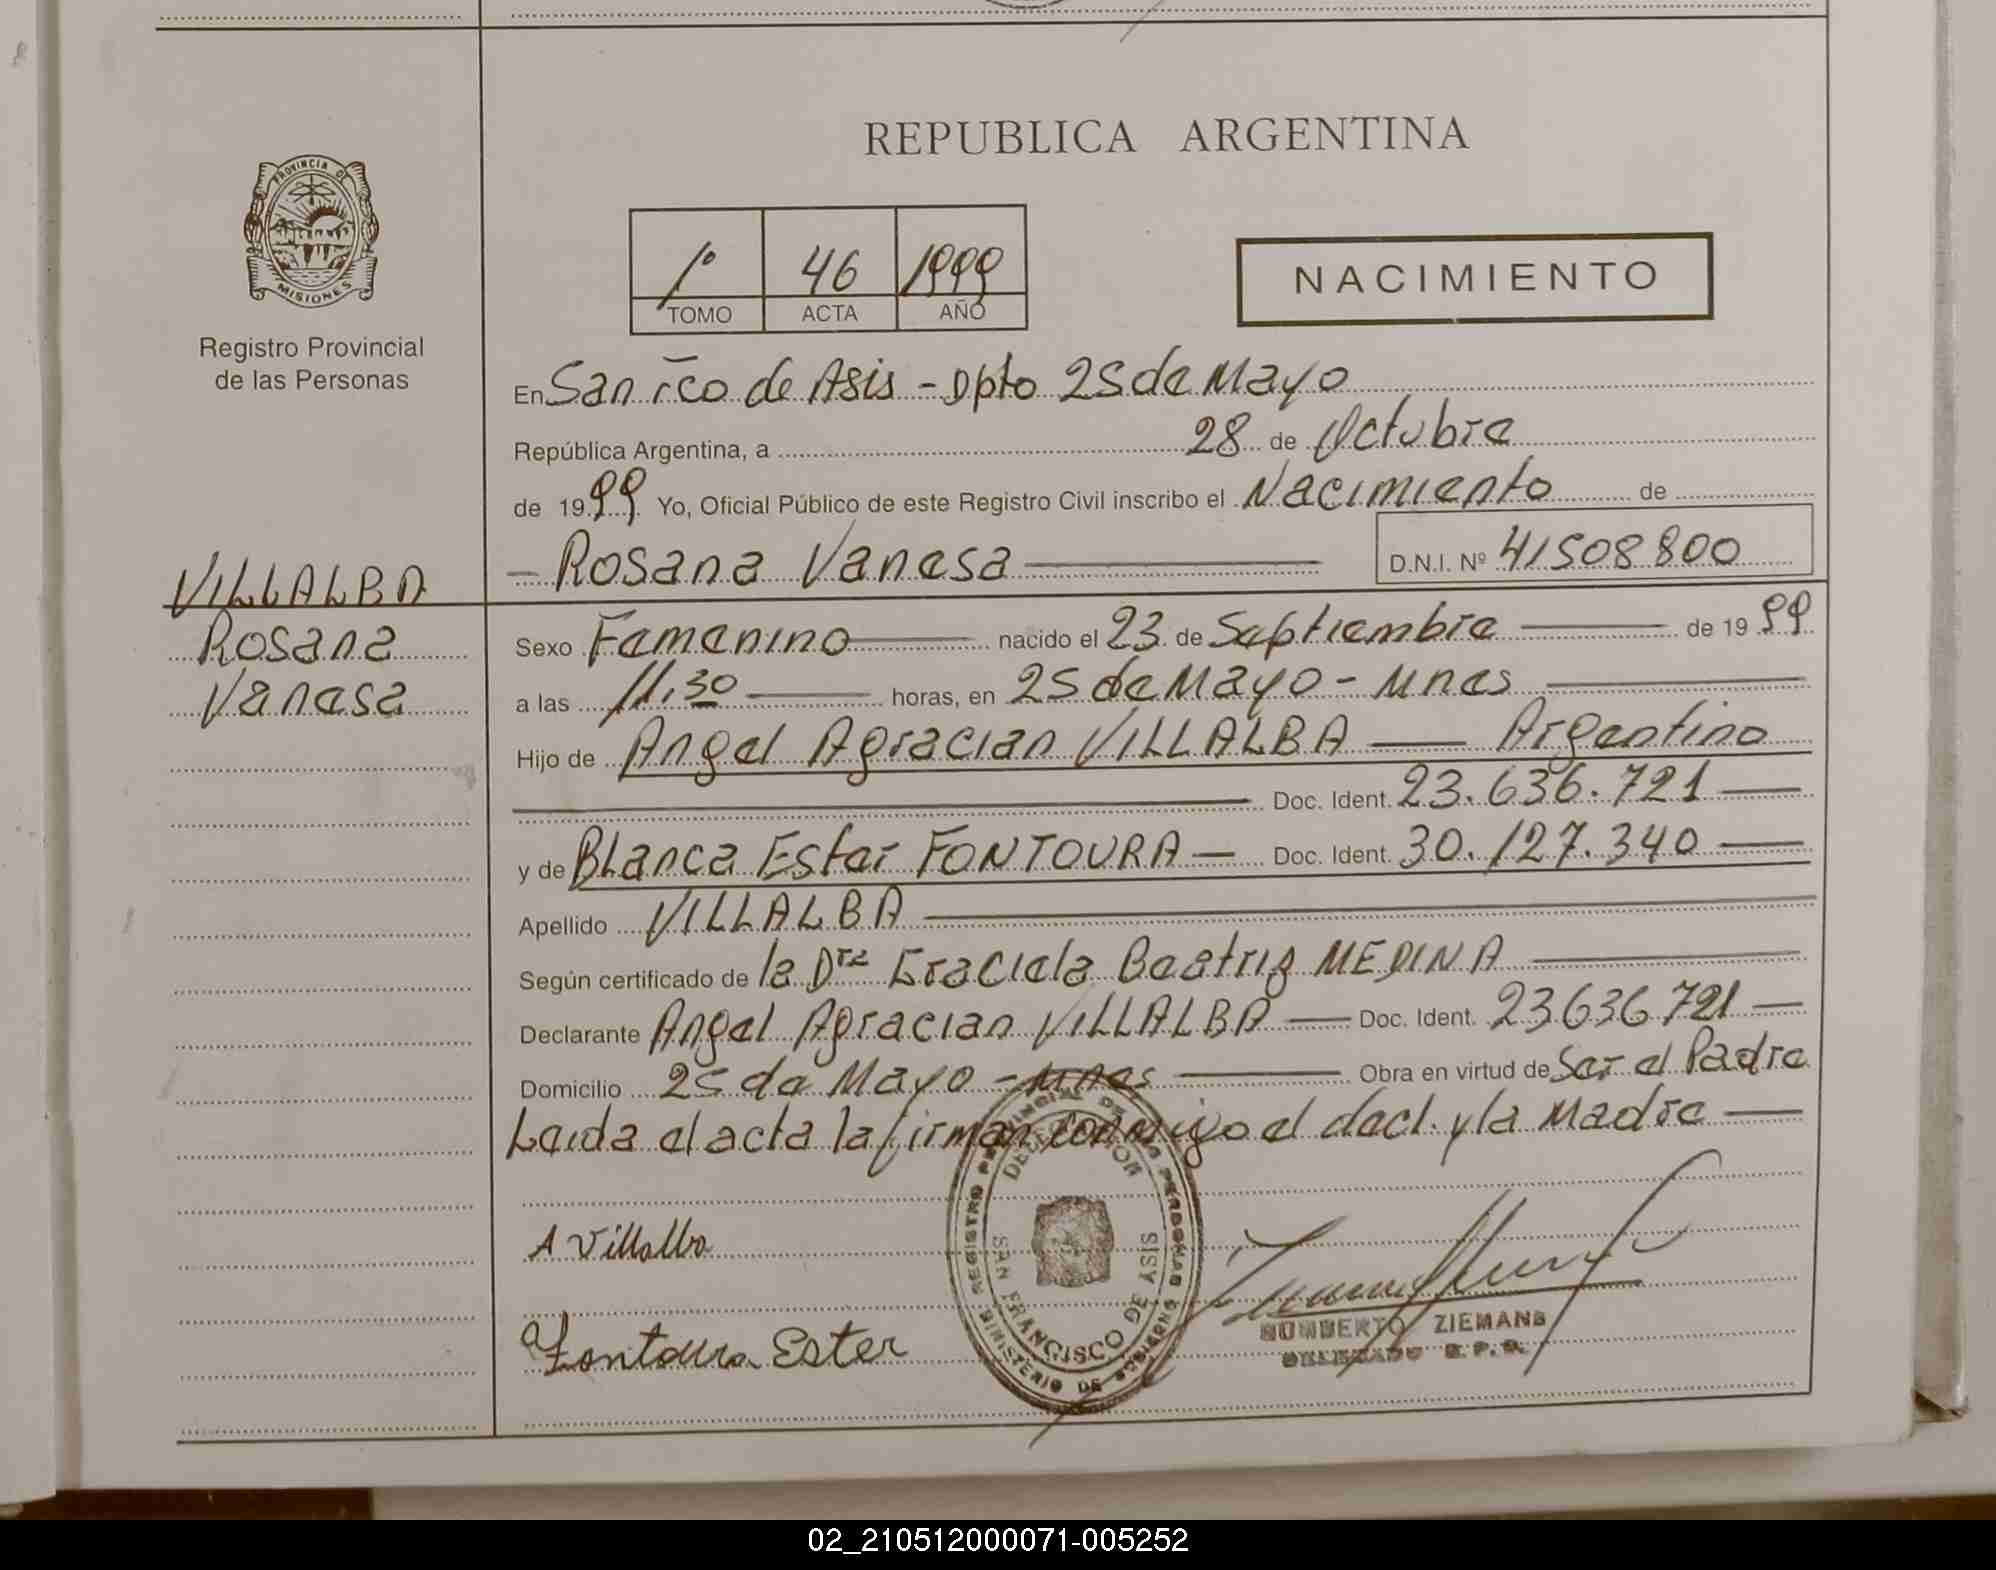 REPUBLICA ARGENTINA
PROVINCIA DE
MISIONES
Registro Provincial
de las Personas
1º 46 1999
TOMO ACTA AÑO
NACIMIENTO
En San Fco de Asis - Dpto 25 de Mayo
República Argentina, a 28 de Octubre
de 1999 Yo, Oficial Público de este Registro Civil inscribo el Nacimiento de
- Rosana Vanesa D.N.I. Nº 41508800
VILLALBA
Rosana
Vanesa
Sexo Femenino nacido el 23 de Septiembre de 1999
a las 11,30 horas, en 25 de Mayo - Mnes
Hijo de Angel Agracian VILLALBA — Argentino
Doc. Ident. 23.636.721 —
y de Blanca Ester FONTOURA — Doc. Ident. 30.127.340 —
Apellido VILLALBA
Según certificado de la Dra Graciela Beatriz MEDINA
Declarante Angel Agracian VILLALBA — Doc. Ident. 23636721 —
Domicilio 25 de Mayo - Mnes — Obra en virtud de Ser el Padre
Leida el acta la firman conmigo el decl. y la Madre —
A Villalba
Fontoura Ester
REGISTRO PROVINCIAL DE LAS PERSONAS
MINISTERIO DE GOBIERNO
SAN FRANCISCO DE ASIS
HUMBERTO ZIEMANS
DELEGADO R.P.P.
02_210512000071-005252